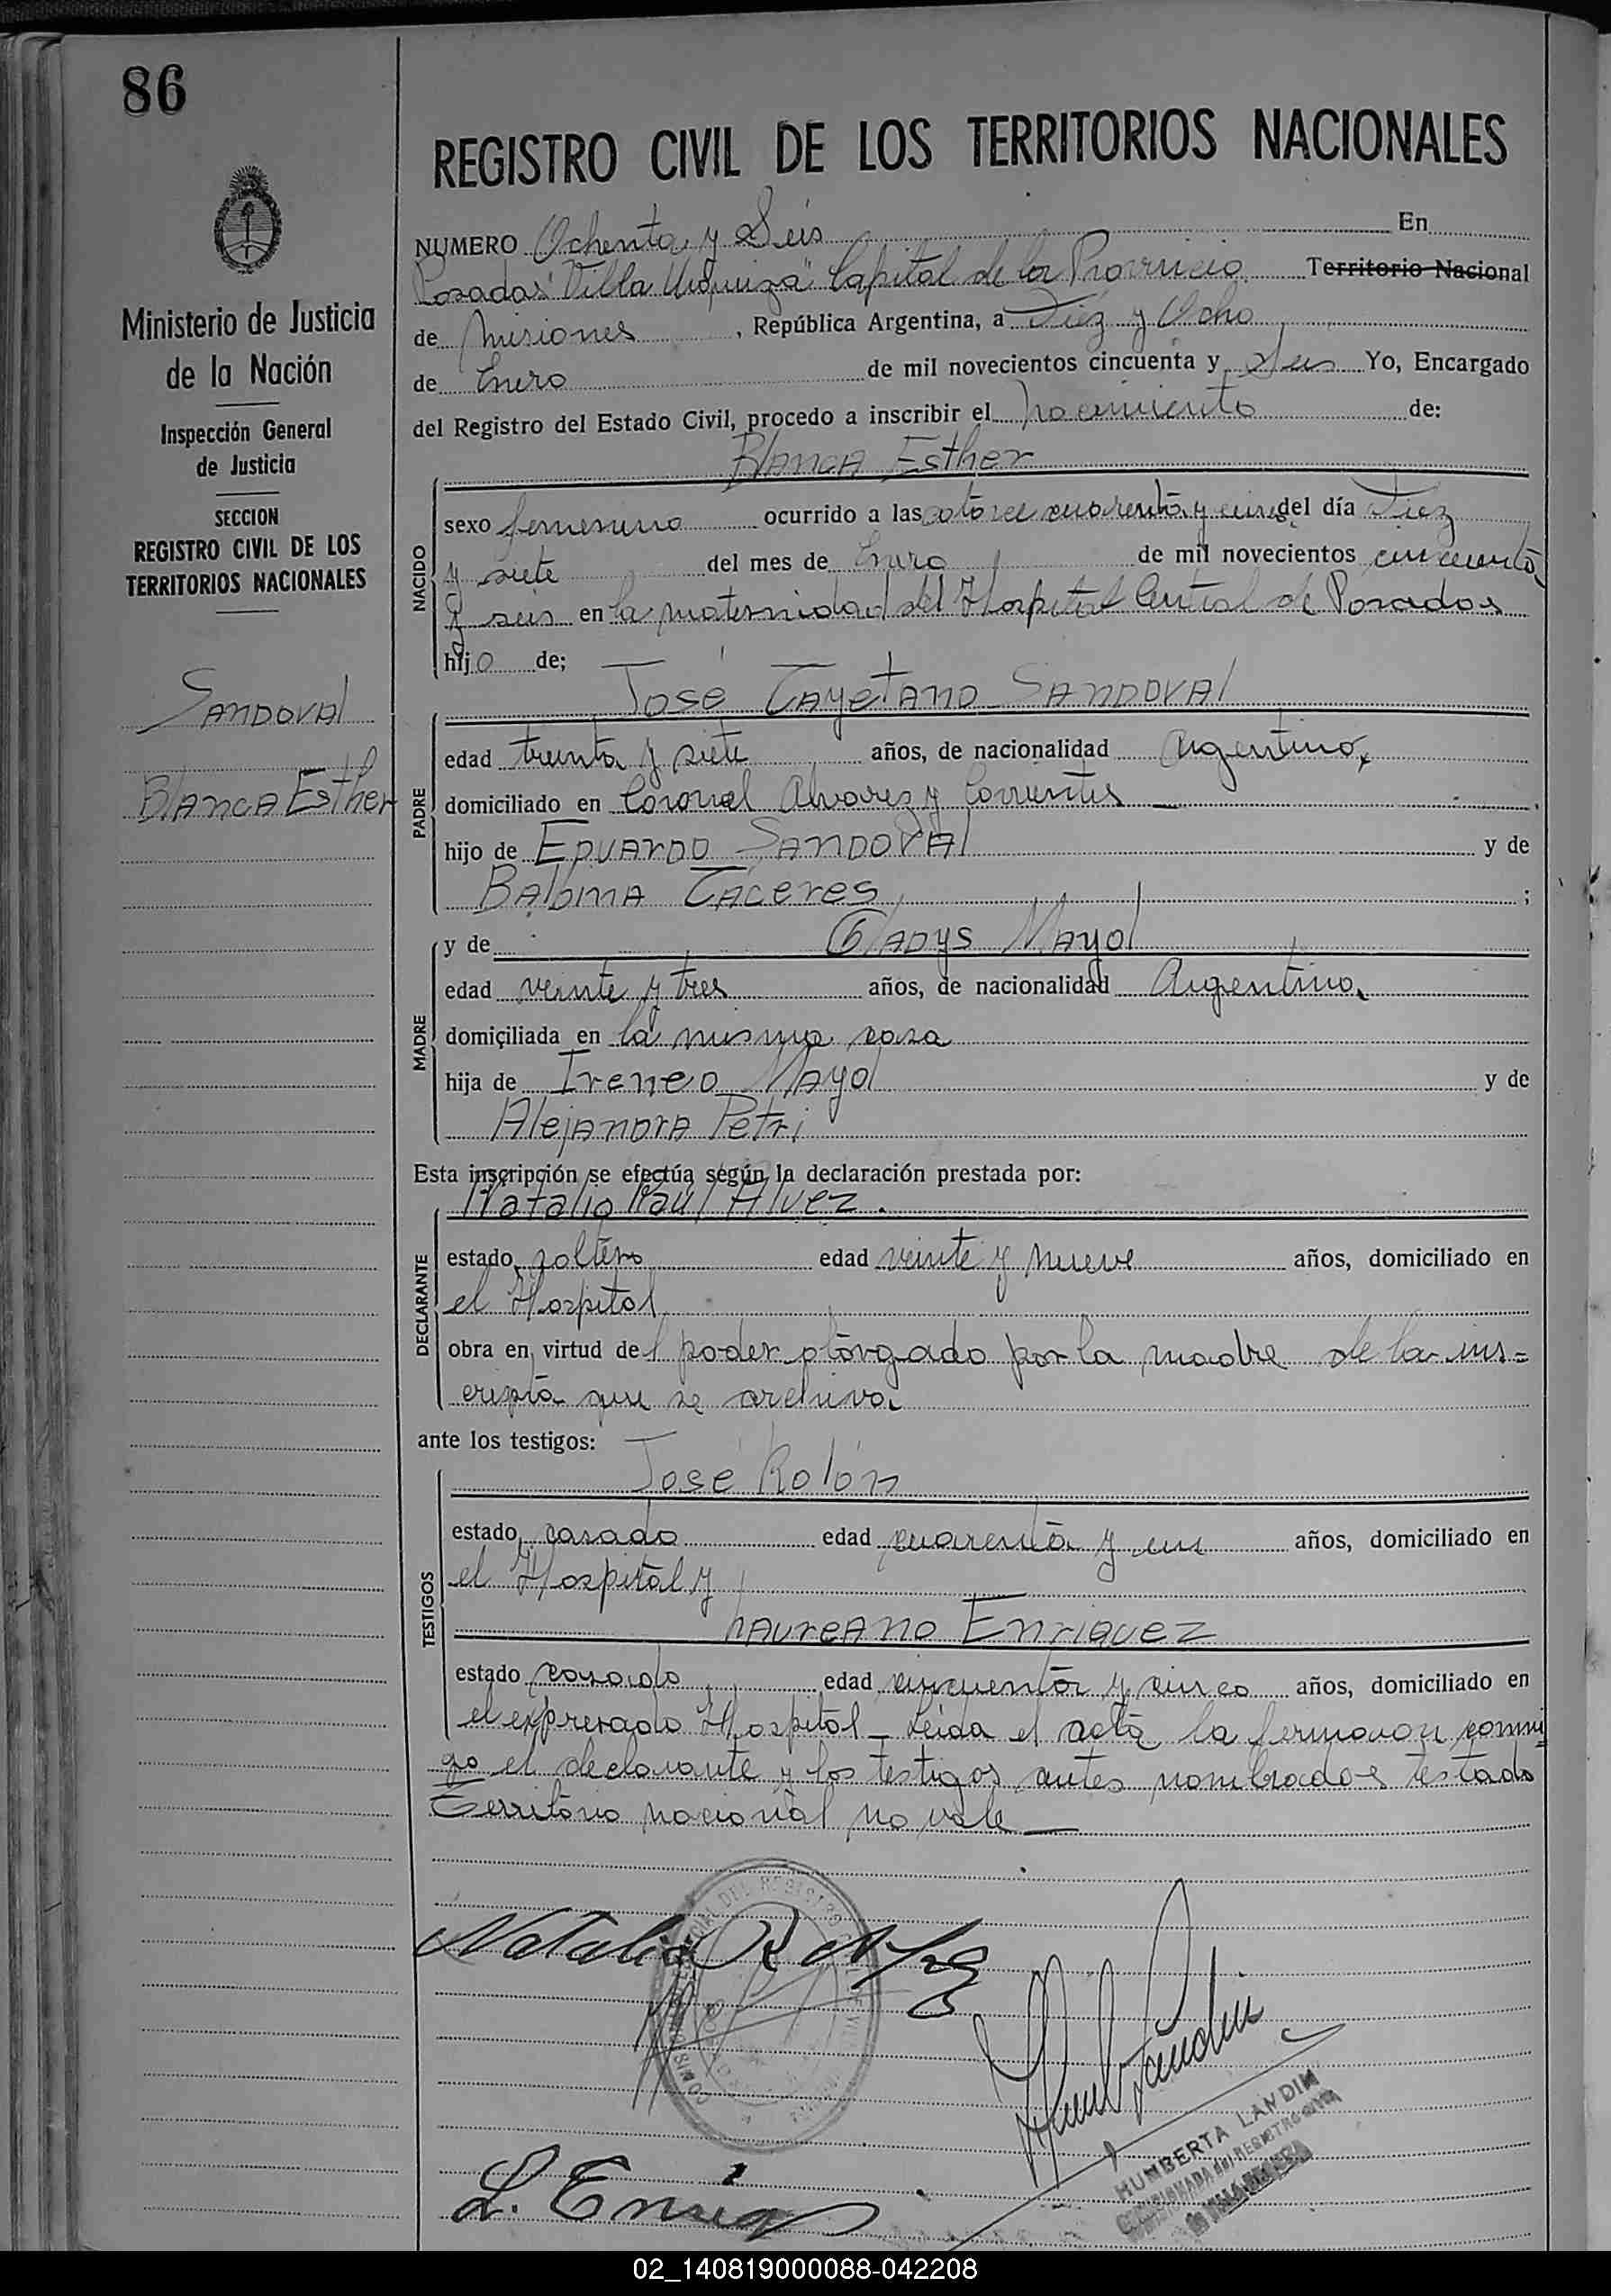 86
REGISTRO CIVIL DE LOS TERRITORIOS NACIONALES
NUMERO Ochenta y Seis En
Posadas "Villa Urquiza" Capital de la Provincia Territorio Nacional
de Misiones, República Argentina, a Diez y Ocho
de Enero de mil novecientos cincuenta y Seis Yo, Encargado
del Registro del Estado Civil, procedo a inscribir el nacimiento de:
Blanca Esther
Ministerio de Justicia
de la Nación
Inspección General
de Justicia
SECCION
REGISTRO CIVIL DE LOS
TERRITORIOS NACIONALES
SANDOVAl
Blanca Esther
NACIDO
sexo femenino ocurrido a las catorce cuarenta y cinco del día Diez
y siete del mes de Enero de mil novecientos cincuenta
y seis en la maternidad del Hospital Central de Posadas
hijo de;
José Cayetano SANDOVAl
PADRE
edad treinta y siete años, de nacionalidad Argentino,
domiciliado en Coronel Alvarez y Corrientes
hijo de Eduardo SANDOVAl y de
Balbina Cáceres ;
MADRE
y de Gladys Mayol
edad veinte y tres años, de nacionalidad Argentina,
domiciliada en la misma casa
hija de Ireneo Mayol y de
Alejandra Petri
Esta inscripción se efectúa según la declaración prestada por:
Natalio Raúl Alvez.
DECLARANTE
estado soltero edad veinte y nueve años, domiciliado en
el Hospital
obra en virtud del poder otorgado por la madre de la ins=
cripta que se archiva.
ante los testigos:
José Rolón
TESTIGOS
estado casado edad cuarenta y un años, domiciliado en
el Hospital y
Laureano Enriquez
estado casado edad cincuenta y cinco años, domiciliado en
el expresado Hospital_ Leida el acta la firmaron conmi
go el declarante y los testigos antes nombrados testado
Territorio nacional no vale_
Natalio R Alvez
L. Enriq
HUMBERTA LANDIN
02_140819000088-042208